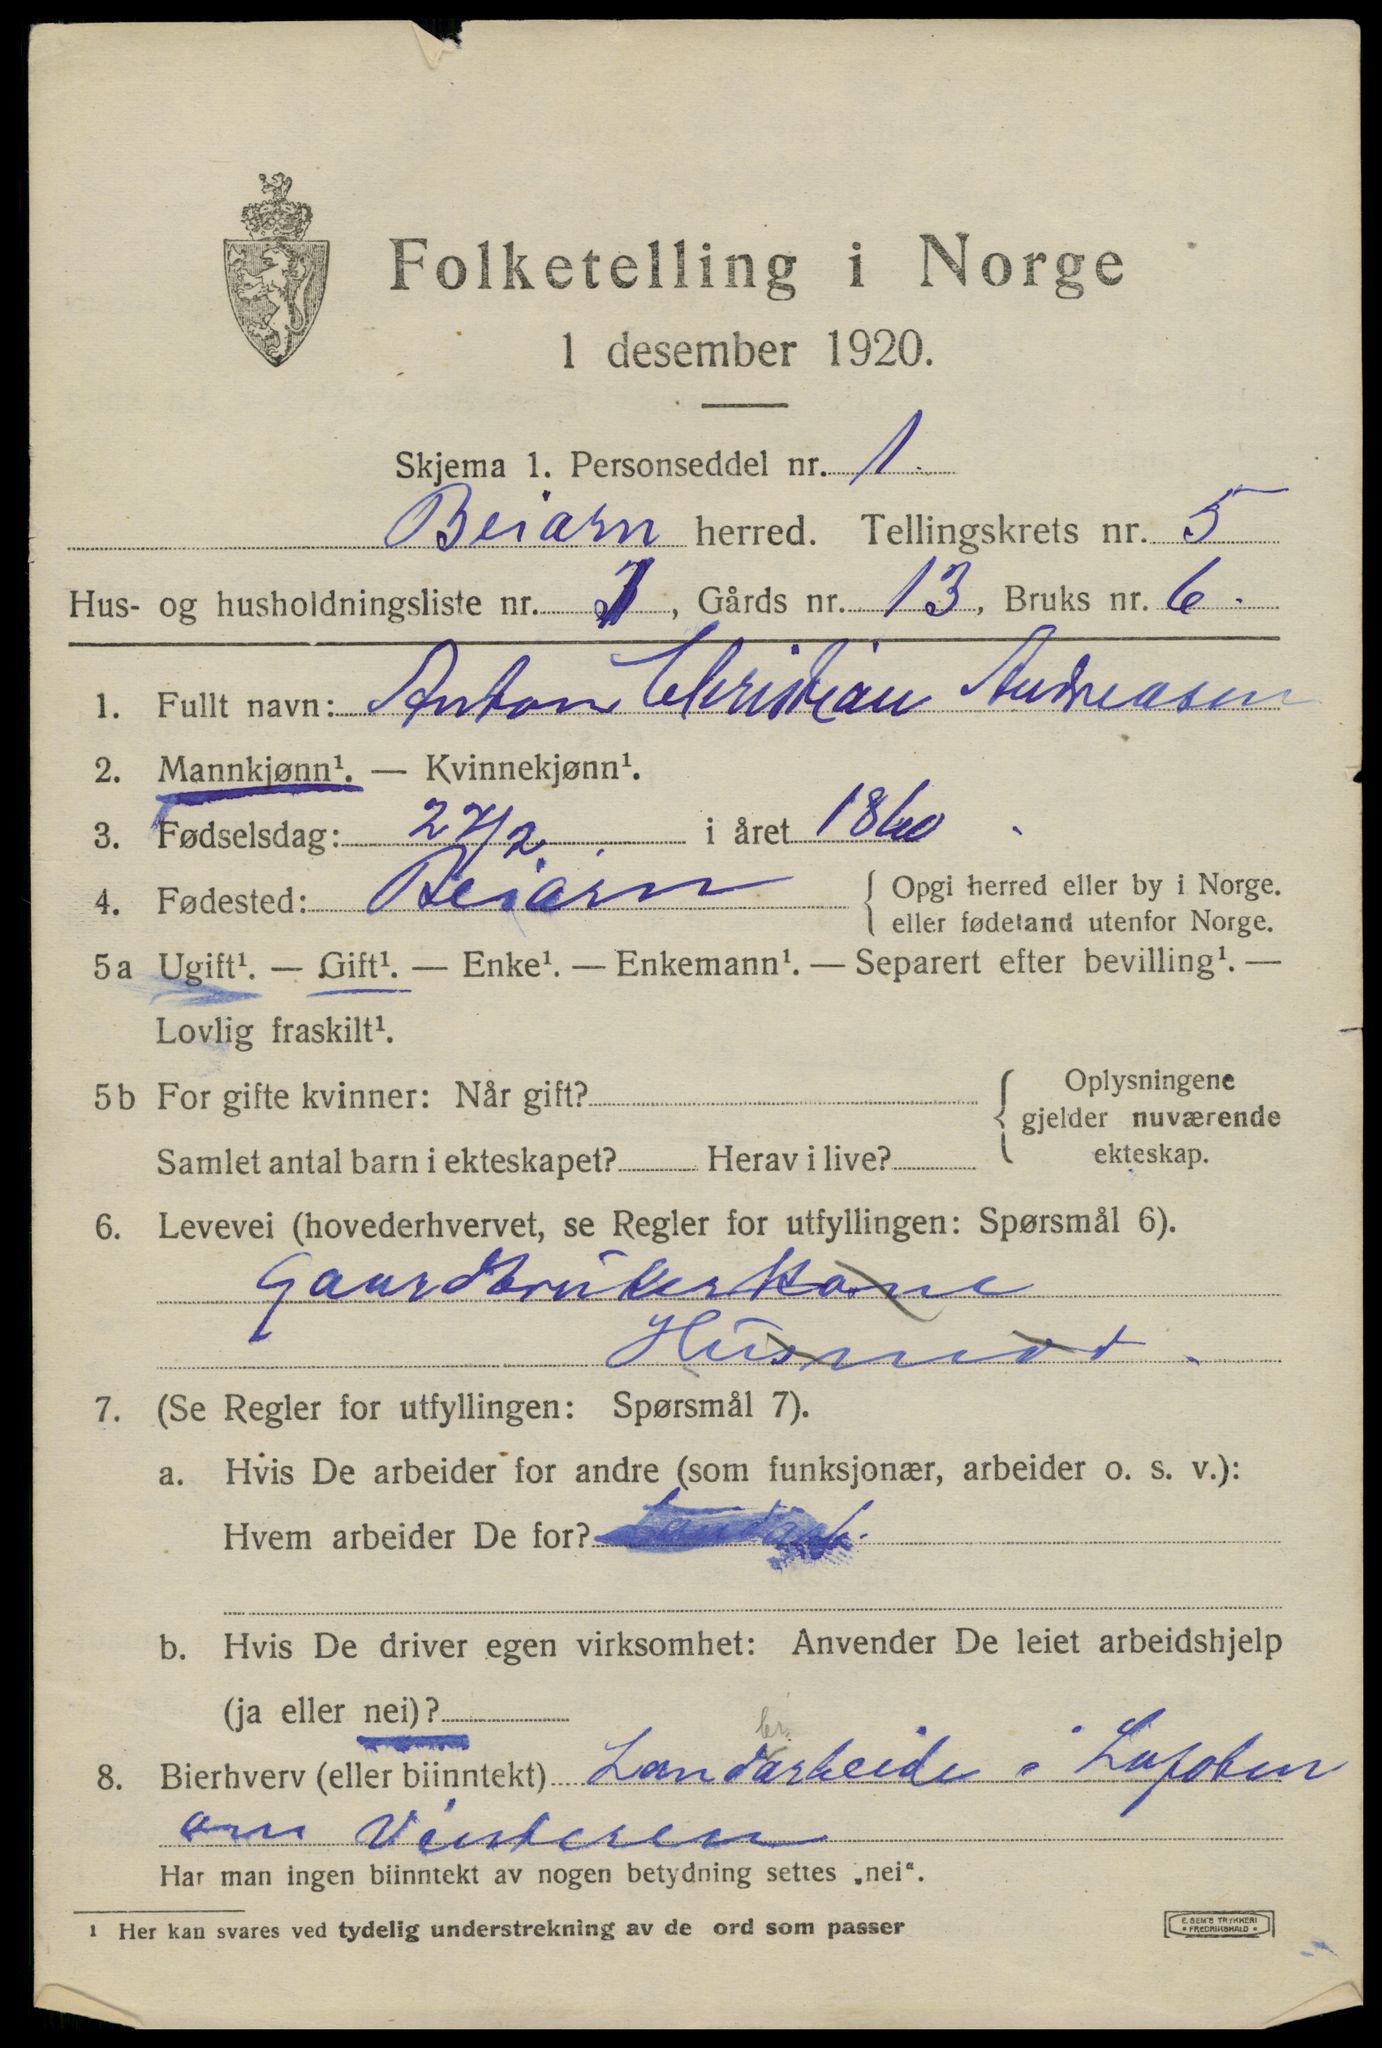 Folketelling i Norge
1 desember 1920.
Skjema 1. Personseddel nr. 1.
Beiarn herred. Tellingskrets nr. 5
Hus- og husholdningsliste nr. 1, Gårds nr. 13, Bruks nr. 6.
1. Fullt navn: Anton Christian Andreasen
2. Mannkjønn¹. — Kvinnekjønn¹.
3. Fødselsdag: 27/2 i året 1860
4. Fødested: Beiarn { Opgi herred eller by i Norge.
eller fødeland utenfor Norge.
5a Ugift¹. — Gift¹. — Enke¹. — Enkemann¹. — Separert efter bevilling¹. —
Lovlig fraskilt¹.
5b For gifte kvinner: Når gift? { Oplysningene
gjelder nuværende
Samlet antal barn i ekteskapet? Herav i live? ekteskap.
6. Levevei (hovederhvervet, se Regler for utfyllingen: Spørsmål 6).
Gaardbruker Kone
Husmor.
7. (Se Regler for utfyllingen: Spørsmål 7).
a. Hvis De arbeider for andre (som funksjonær, arbeider o. s. v.):
Hvem arbeider De for?
b. Hvis De driver egen virksomhet: Anvender De leiet arbeidshjelp
(ja eller nei)?
8. Bierhverv (eller biinntekt) Landarbeide i Lofoten
om Vinteren
Har man ingen biinntekt av nogen betydning settes „nei“.
¹ Her kan svares ved tydelig understrekning av de ord som passer
E. SEM'S TRYKKERI
• FREDRIKSHALD •